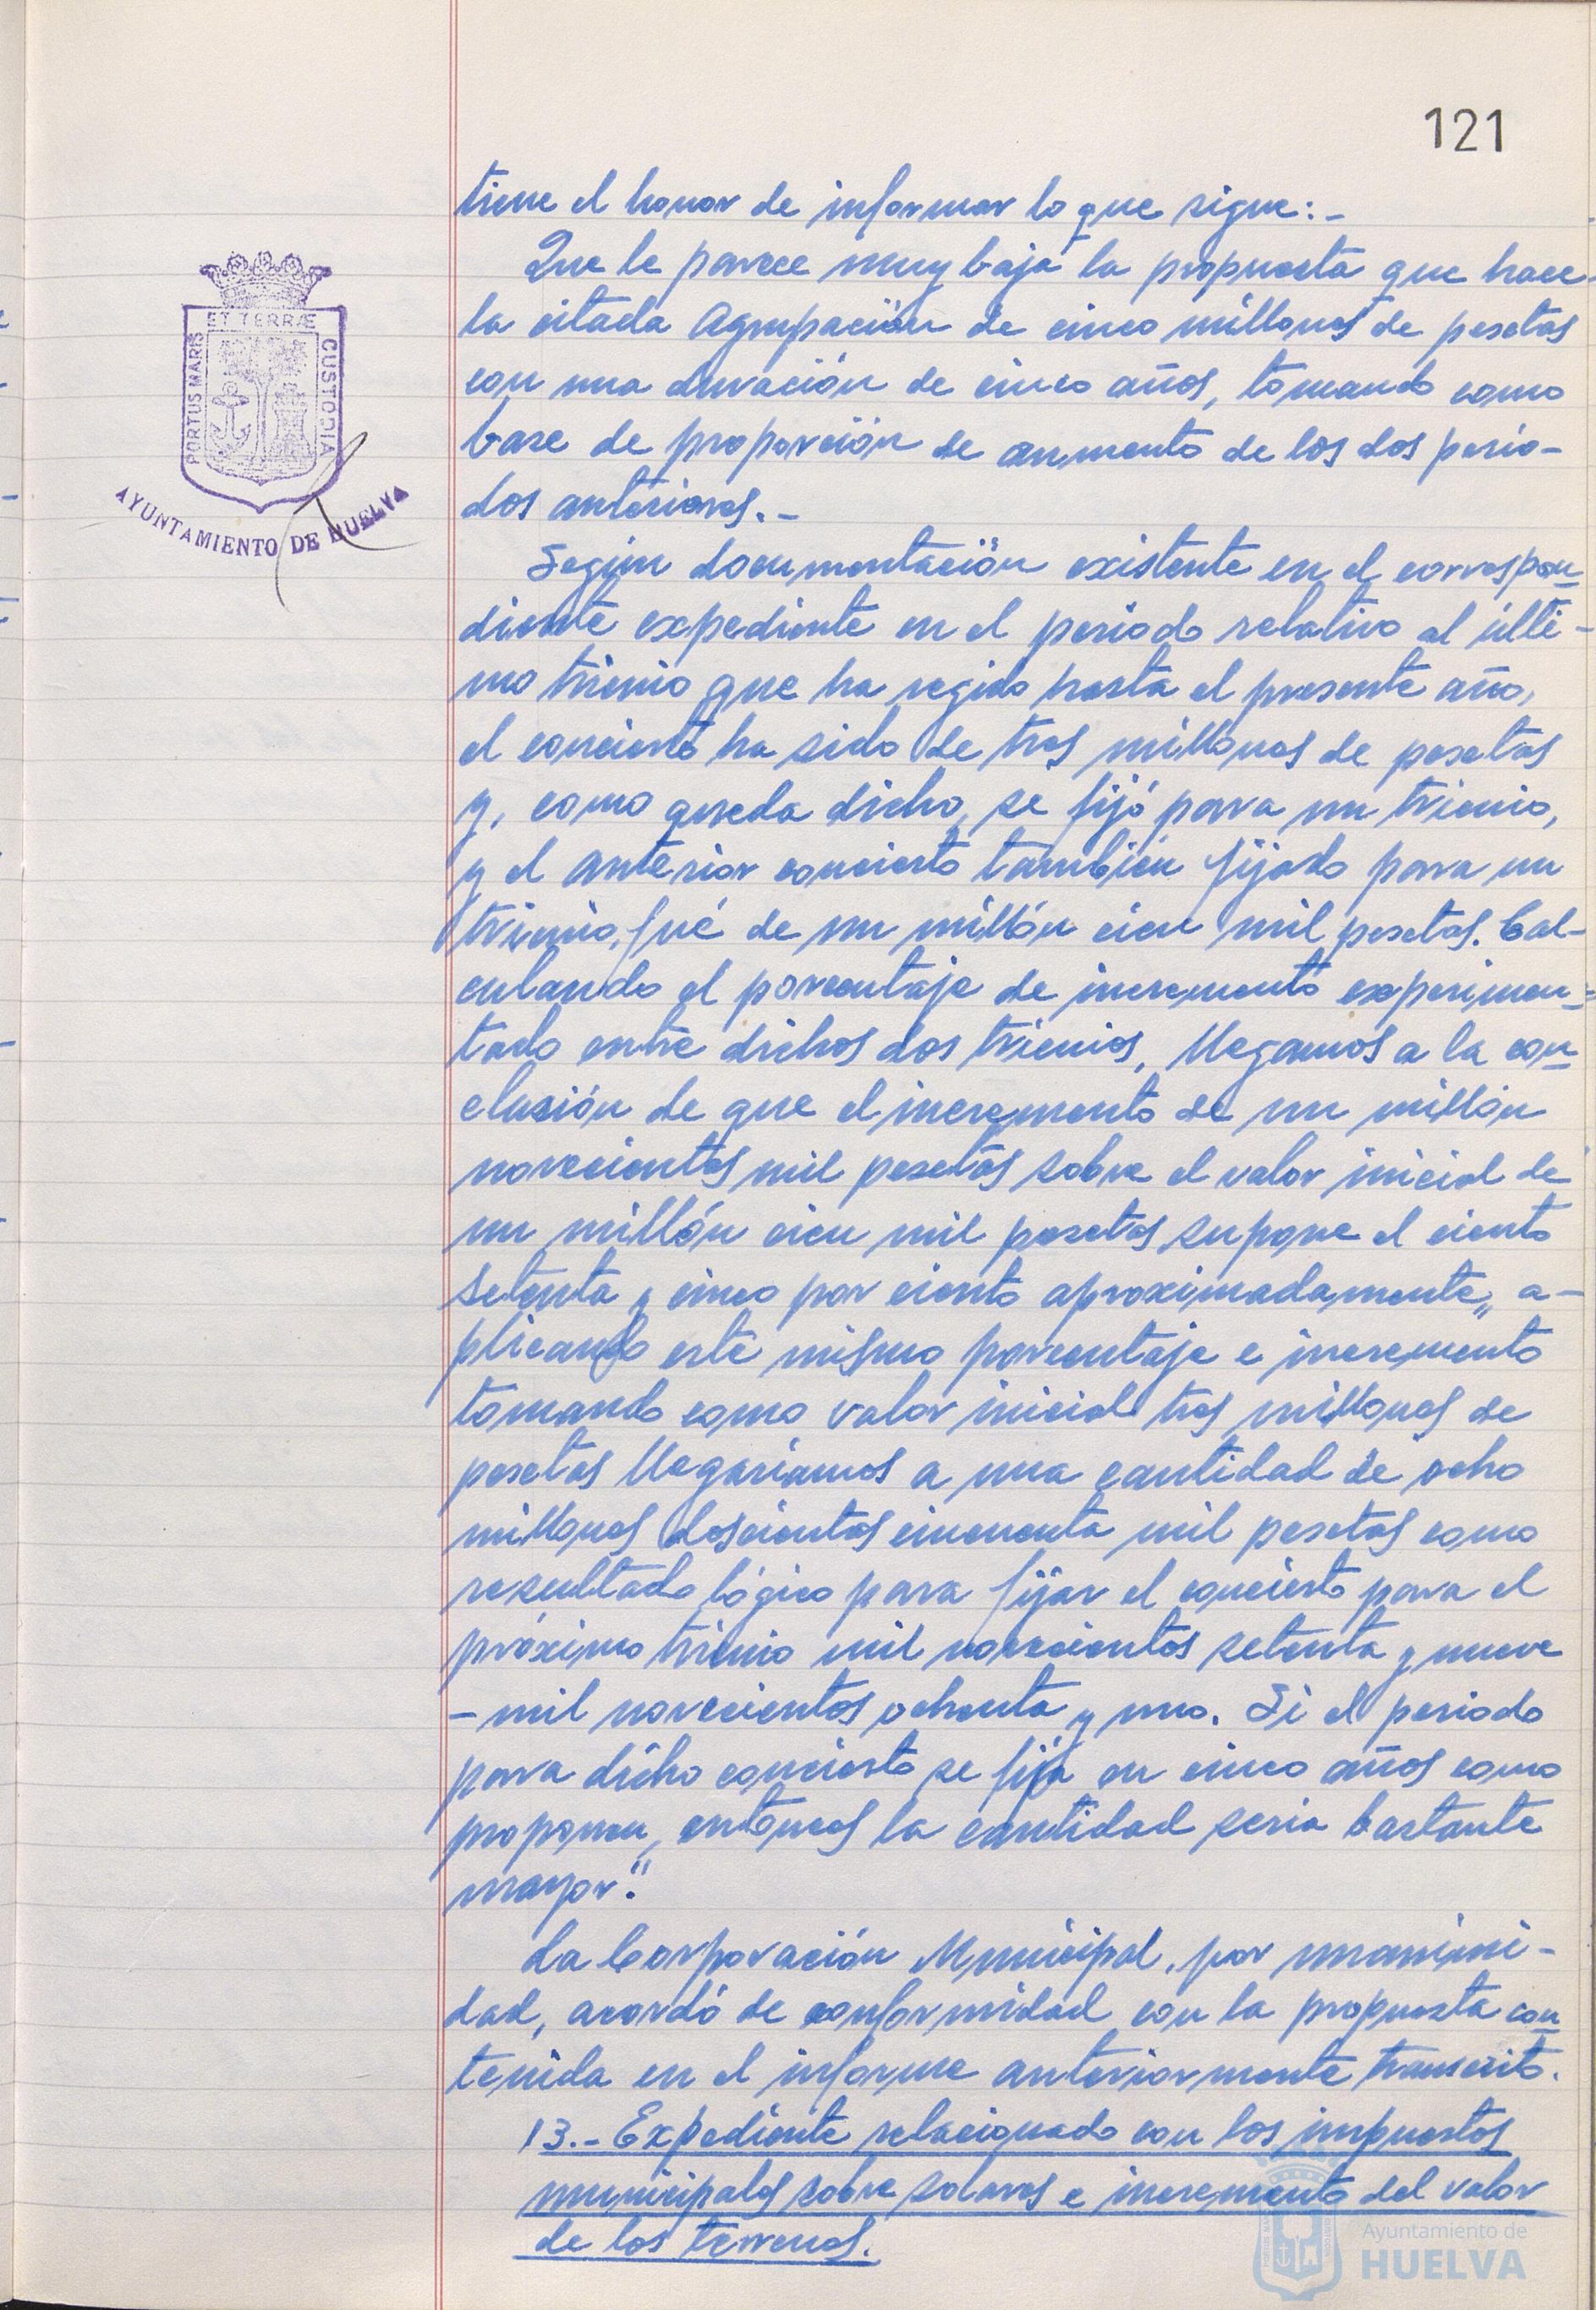 121
tiene el honor de informar lo que sigue:-
Que le parece muy baja la propuesta que hace
la citada Agrupación de cinco millones de pesetas
con una duración de cinco años, tomando como
base de proporción de aumento de los dos perio-
dos anteriores.-
Según documentación existente en el correspon
diente expediente en el periodo relativo al últi-
mo trienio que ha regido hasta el presente año,
el concierto ha sido de tres millones de pesetas
y, como queda dicho, se fijó para un trienio,
y el anterior concierto también fijado para un
trienio, fué de un millón cien mil pesetas. Cal-
culando el porcentaje de incremento experimen-
tado entre dichos dos trienios, llegamos a la con
clusión de que el incremento de un millón
novecientas mil pesetas sobre el valor inicial de
un millón cien mil pesetas, supone el ciento
setenta y cinco por ciento aproximadamente, a-
plicando este mismo porcentaje e incremento
tomando como valor inicial tres millones de
pesetas llegaríamos a una cantidad de ocho
millones doscientas cincuenta mil pesetas como
resultado lógico para fijar el concierto para el
próximo trienio mil novecientos setenta y nueve
- mil novecientos ochenta y uno. Si el periodo
para dicho concierto se fija en cinco años como
proponen, entonces la cantidad seria bastante
mayor."
La Corporación Municipal, por unanimi-
dad, acordó de conformidad con la propuesta con
tenida en el informe anteriormente transcrito.
13.- Expediente relacionado con los impuestos
municipales sobre solares e incremento del valor
de los terrenos.
PORTUS MARIS
ET TERRÆ
CUSTODIA
AYUNTAMIENTO DE HUELVA
Ayuntamiento de
HUELVA